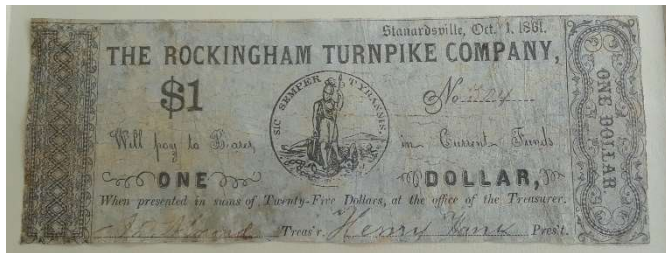 Stanardsville, Oct. 1, 1861.
THE ROCKINGHAM TURNPIKE COMPANY,
$1
SIC SEMPER TYRANNIS.
No.
Will pay to Bearer, in Current Funds
ONE DOLLAR,
When presented in sums of Twenty-Five Dollars, at the office of the Treasurer.
Treas'r. Henry Pres't.
ONE DOLLAR